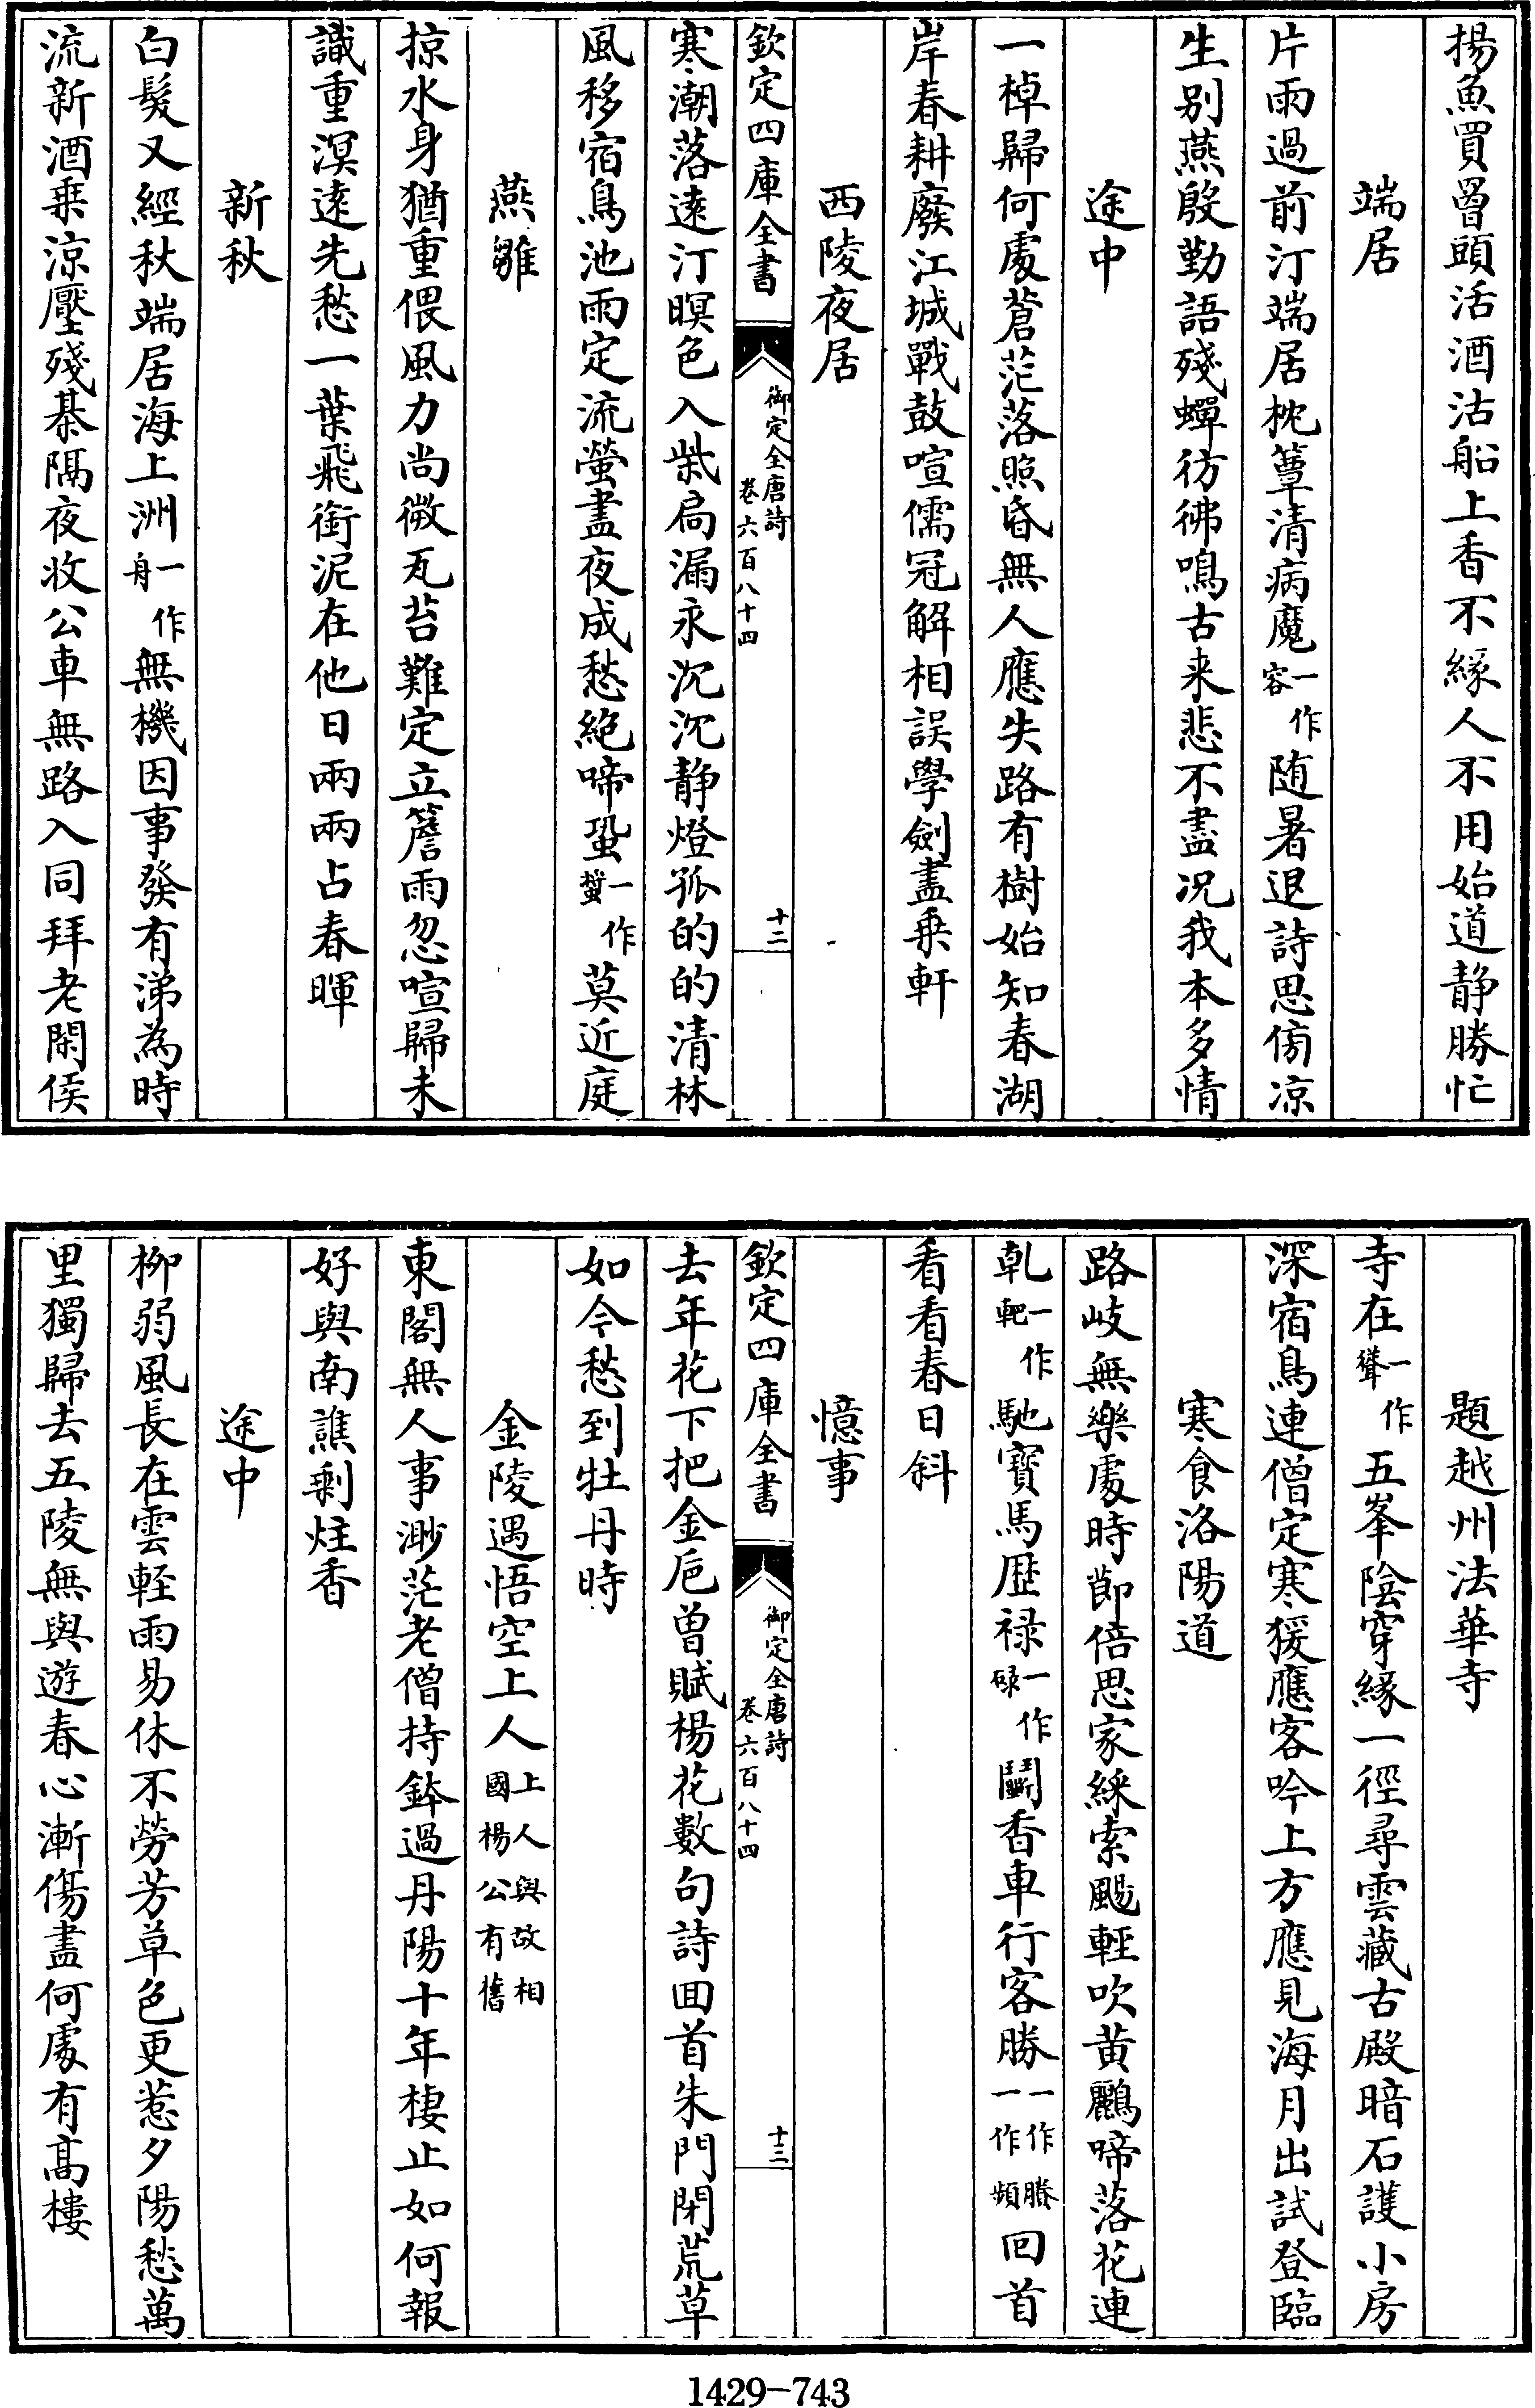 揚魚買罾頭活酒沽船上香不緣人不用始道静勝忙
端居
片雨過前汀端居枕簟清病魔一作容随暑退詩思傍凉
生别燕殷勤語殘蟬彷彿鳴古来悲不盡况我本多情
途中
一棹歸何處蒼茫落照昏無人應失路有樹始知春湖
岸春耕廢江城戰鼓喧儒冠解相誤學劍盡乗軒
西陵夜居
欽定四庫全書
御定全唐詩
卷六百八十四
十二
寒潮落逺汀暝色入柴扃漏永沉沉静燈孤的的清林
風移宿鳥池雨定流螢盡夜成愁絶啼蛩一作螿莫近庭
燕雛
掠水身猶重偎風力尚微瓦苔難定立簷雨忽喧歸未
識重溟逺先愁一葉飛銜泥在他日兩兩占春暉
新秋
白髮又經秋端居海上洲一作舟無機因事發有涕為時
流新酒乗涼壓殘棊隔夜收公車無路入同拜老閑侯
題越州法華寺
寺在一作聳五峯陰穿緣一徑尋雲藏古殿暗石護小房
深宿鳥連僧定寒猨應客吟上方應見海月出試登臨
寒食洛陽道
路岐無樂處時節倍思家綵索颺輕吹黄鸝啼落花連
乹一作軶馳寶馬歴禄一作碌鬭香車行客勝一作勝一作頻回首
看看春日斜
憶事
欽定四庫全書
御定全唐詩
卷六百八十四
十三
去年花下把金巵曽賦楊花數句詩囬首朱門閉荒草
如今愁到牡丹時
金陵遇悟空上人上人與故相國楊公有舊
東閣無人事渺茫老僧持鉢過丹陽十年棲止如何報
好與南譙剰炷香
途中
柳弱風長在雲輊雨易休不勞芳草色更惹夕陽愁萬
里獨歸去五陵無與遊春心漸傷盡何處有髙樓
1429-743